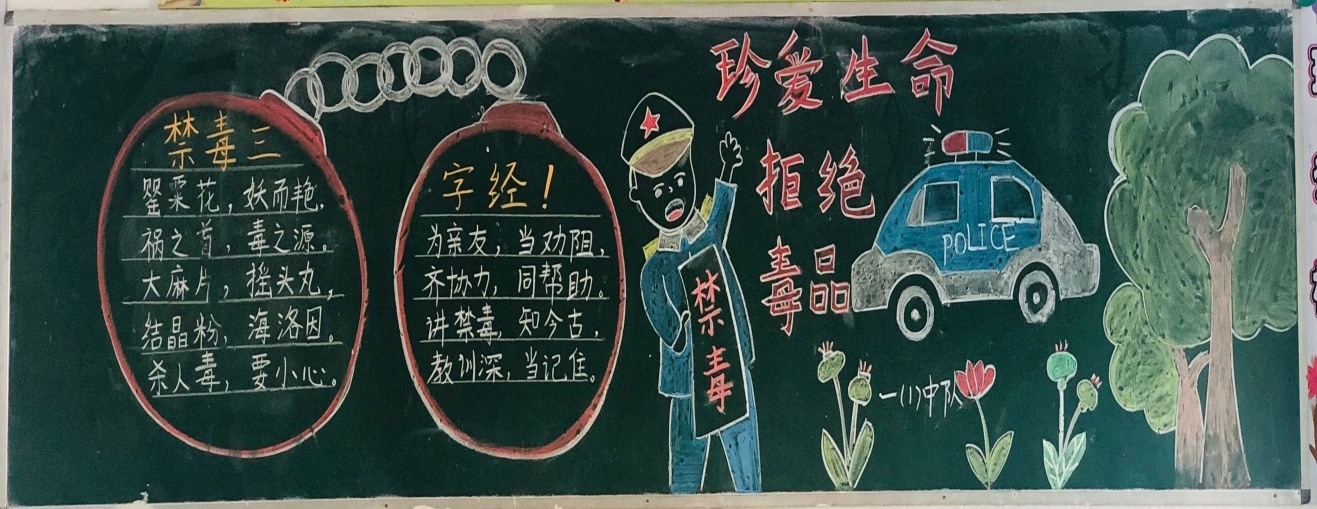 禁毒三
罂粟花，妖而艳，
祸之首，毒之源。
大麻片，摇头丸，
结晶粉，海洛因。
杀人毒，要小心。
字经！
为亲友，当劝阻，
齐协力，同帮助。
讲禁毒，知今古，
教训深，当记住。
禁毒
珍爱生命
拒绝
毒品
POLICE
一(1)中队